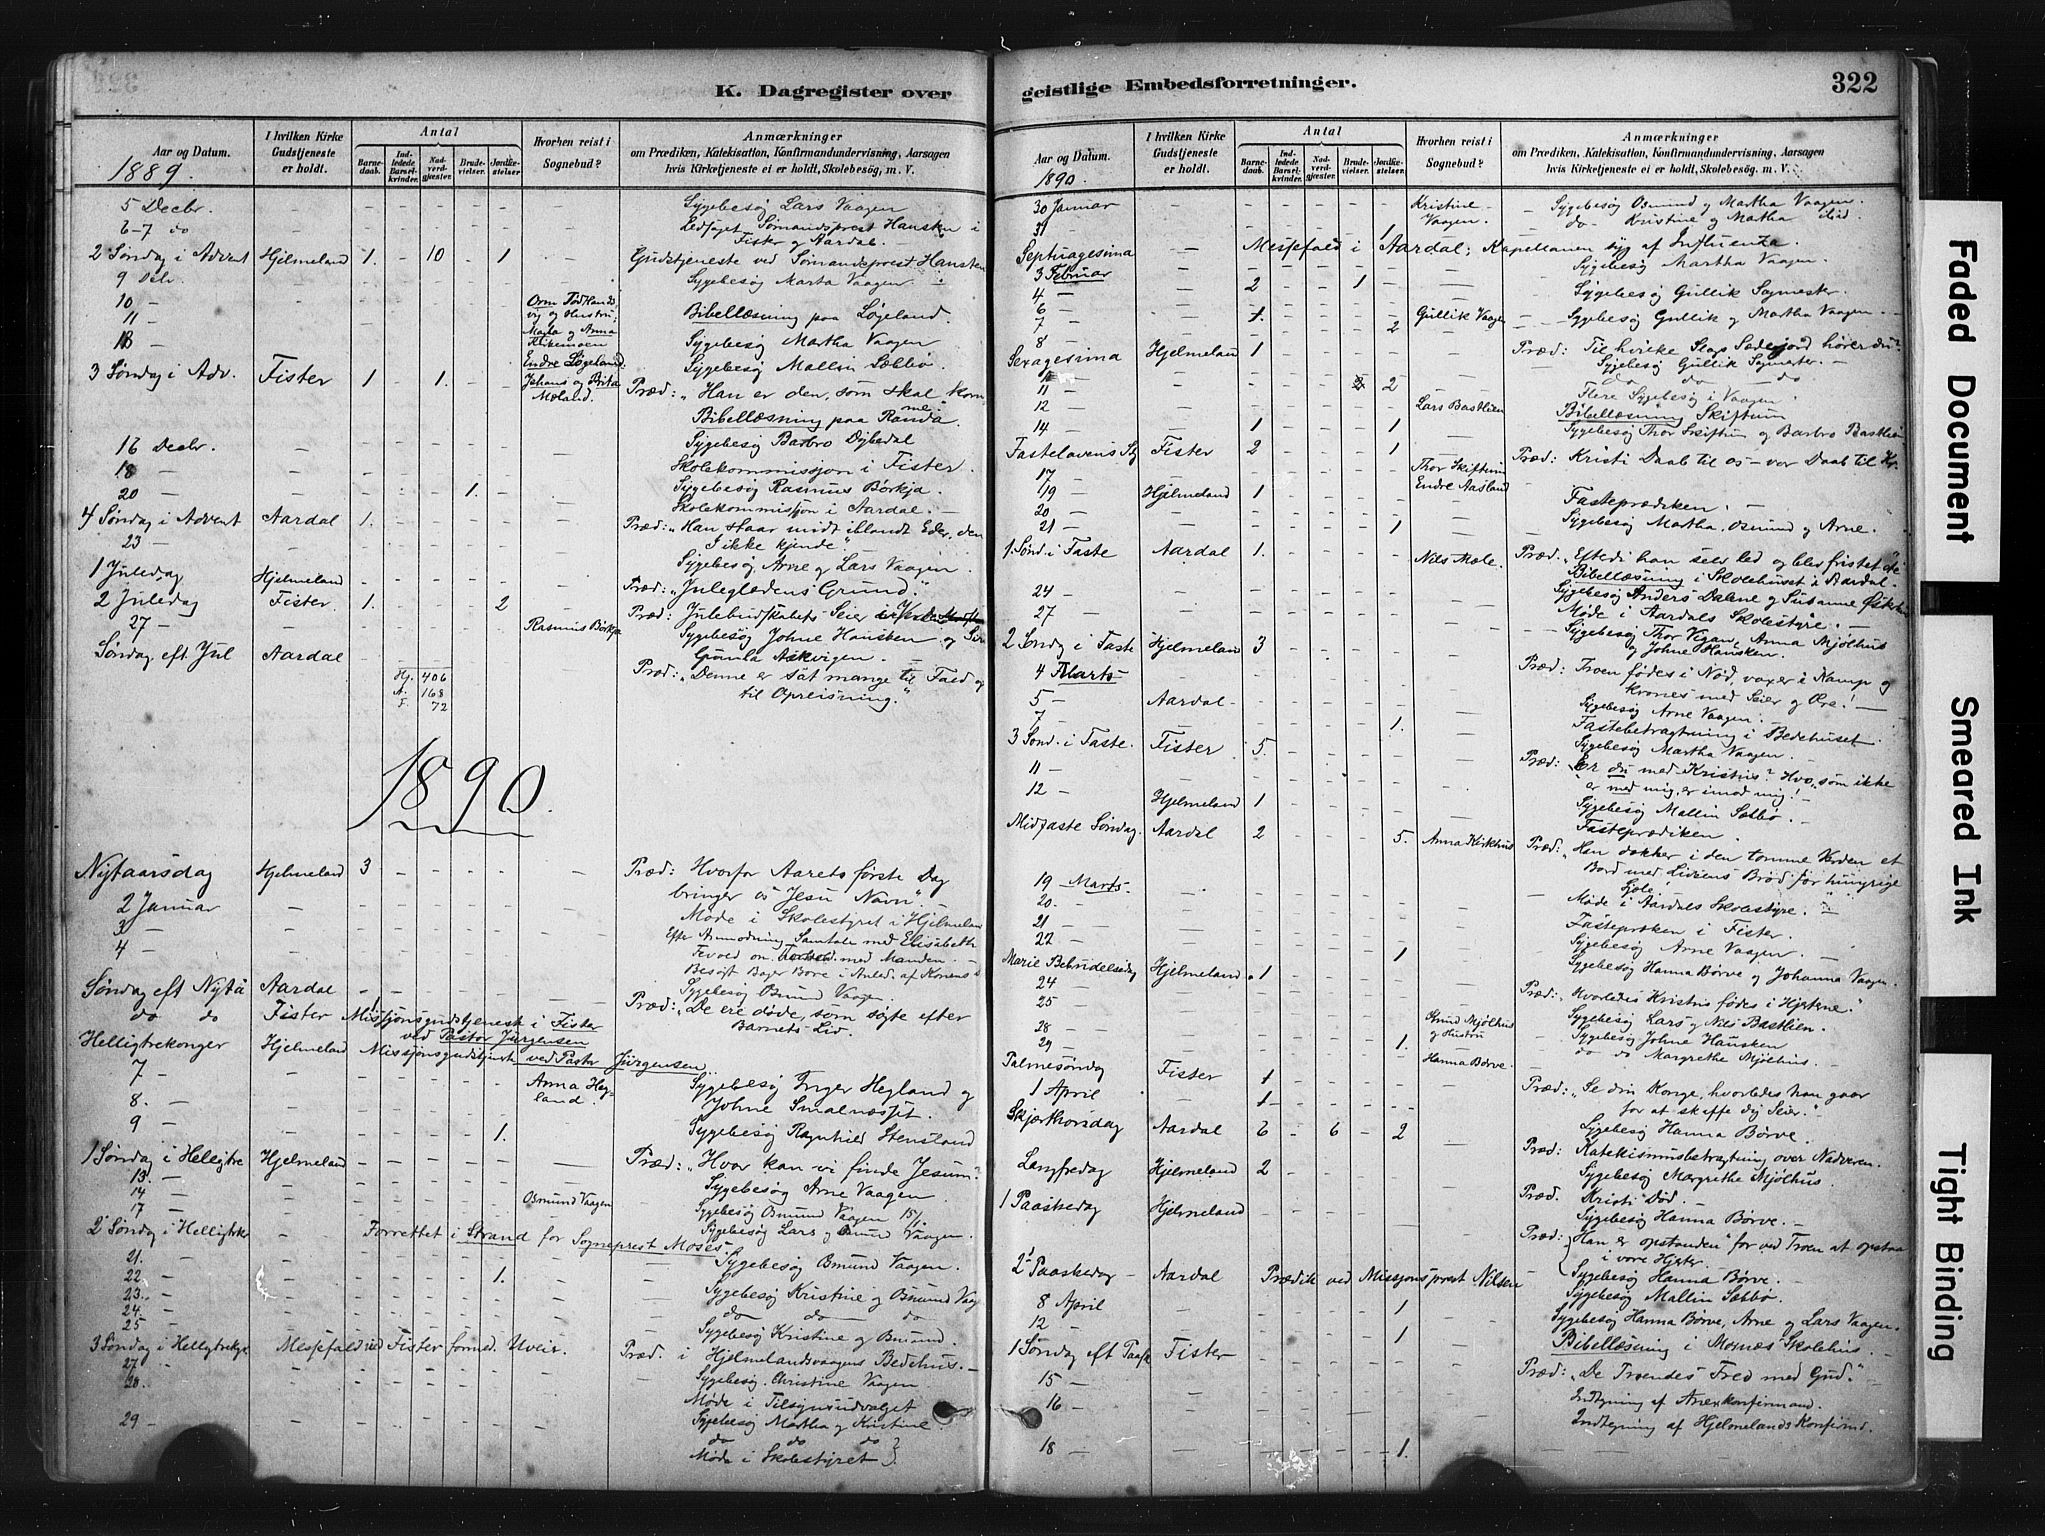 K. Dagregister over
Aar og Datum.
1889.
I hvilken Kirke Gudstjeneste er holdt.
Antal
Barnedaab.
Indledede Barselkvinder.
Nadverdgjæster.
Brudevielser.
Jordfæstelser.
Hvorhen reist i Sognebud?
Anmærkninger
om Prædiken, Katekisation, Konfirmandundervisning, Aarsagen
hvis Kirketjeneste ei er holdt, Skolebesøg, m. V.
5 Decbr. Sygebesøg Lars Vaagen
6-7 do Ledsaget Sømandsprest Hansken i
Fister og Aardal.
2 Søndag i Advent Hjelmeland 1. 10 1 Gudstjeneste ved Sømandsprest Hansken
9 Debr. Sygebesøg Marta Vaagen
10
11 Bibellæsning paa Løgeland.
Sygebesøg Martha Vaagen
Endre Løgeland. Sygebesøg Mallin Sæbbø.
3 Søndag i Adv. Fister 1 1. Johans og Brita Mæland. Præd: "Han er den, som skal kom-
me"
Bibellæsning paa Randa.
16 Decbr. Sygebesøg Barbro Dybedal
18 Skolekommissjon i Fister.
20 1. Sygebesøg Rasmus Børkja.
Skolekommissjon i Aardal.
4 Søndag i Advent Aardal 1. Præd: "Han staar midt iblandt Eder, den
I ikke kjende"
23 Sygebesøg Arne og Lars Vaagen.
1 Juledag Hjelmeland Præd: "Juleglædens Grund."
2 Juledag Fister. 1. 2 Præd: Julebudskabets Seier
27 Rasmus Børkja Sygebesøg Johne Hansken og
Gunla Askvigen.
Søndag eft Jul Aardal Præd: "Denne er sat mange til Fald og
til Opreisning."
Hj. 406
A. 168
F. 72
1890
Nytaarsdag Hjelmeland 3 Præd: Hvorfor Aarets første Dag
bringer os Jesu Navn".
2 Januar Møde i Skolestyret i Hjelmeland
3 Efter Anmodning Samtale med Elisabeth
4 med Manden.
Besøgt Bager Børe i Anled. af Konens
Sygebesøg Osmund Vaagen.
Søndag eft Nytå Aardal Præd: "De ere døde, som søgte efter
Barnets Liv.
do do Fister Missjonsgudstjeneste i Fister
ved Pastor Jürgensen
Helligtrekonger Hjelmeland Missjonsgudstjeneste ved Pastor Jürgensen
7 Anna Hegland. Sygebesøg Inger Hegland og
8. Johne Smalnæsset.
9 1. Sygebesøg Ragnhild Stensland
1 Søndag i Helligtre Hjelmeland Præd: "Hvor kan vi finde Jesum?
13. Sygebesøg Arne Vaagen
14 Osmund Vaagen Sygebesøg Osmund Vaagen 15/1
17 Sygebesøg Lars og Osmund Vaagen.
2 Søndag i Helligtrek Forrettet i Strand for Sogneprest Moses.
21. Sygebesøg Osmund Vaagen.
22 1. Sygebesøg Kristine og Osmund Vaag
23. do do do
24.
25 Sygebesøg Kristine og Osmund.
3 Søndag i Helligtrekg. Messefald ved Fister formed. Uveir. Præd. i Hjelmelandsvaagens Bedehus.
27 Sygebesøg. Christine Vaagen
28. Møde i Tilsynsudvalget
29 Sygebesøg Martha og Kristine
do do do
Møde i Skolestyret
geistlige Embedsforretninger.
322
Aar og Datum.
1890.
I hvilken Kirke Gudstjeneste er holdt.
Antal
Barnedaab.
Indledede Barselkvinder.
Nadverdgjæster.
Brudevielser.
Jordfæstelser.
Hvorhen reist i Sognebud?
Anmærkninger
om Prædiken, Katekisation, Konfirmandundervisning, Aarsagen
hvis Kirketjeneste ei er holdt, Skolebesøg, m. V.
30 Januar Kristine Vaagen. Sygebesøg Osmund og Martha Vaagen.
31 1 do Kristine og Martha ibid.
Septuagesima Messefald i Aardal; Kapellanen syg af Influenza.
3 Februar Sygebesøg Martha Vaagen.
4 2 1 Sygebesøg Gullik Sagmester.
6 1. Gullik Vaagen Sygebesøg Gullik og Martha Vaagen.
7 2
8
Sexagesima Hjelmeland 1 Præd: Til hvilke Slags Sædejord hører du?
Sygebesøg Gullik Sagmester.
11 2 do do do
12 Lars Bastlien Flere Sygebesøg i Vaagen.
Bibellæsning Skiftun
14 1 1 Sygebesøg Thor Skiftun og Barbro Bastlien
Fastelavens Sg Fister 2 1 Thor Skiftun Præd: Kristi Daab til os – vor Daab til Kr.
17 Endre Aasland
19 Hjelmeland 1 Fasteprædiken.
20
21 1 Sygebesøg Martha, Osmund og Arne.
1. Sønd. i Faste Aardal 1. Nils Mæle. Præd. "Efterdi han selv led og blev fristet"
Bibellæsning i Skolehuset i Aardal.
24 Sygebesøg Anders Dalene og Susanne
27 Møde i Aardals Skolestyre.
Sygebesøg Thor Vigan, Anna Mjølhus
og Johne Hansken.
2 Sønd i Faste Hjelmeland 3 Præd: Troen fødes i Nød, voxer i Kamp og
krones med Seier og Ære!
4 Marts Sygebesøg Arne Vaagen.
5 Aardal Fastebetragtning i Bedehuset
7 1. Sygebesøg Martha Vaagen.
3 Sønd. i Faste. Fister 5. Præd: Er du med Kristus? Hvo, som ikke
er med mig, er imod mig!
11 Sygebesøg Mallin Sæbbø.
12 Hjelmeland 1 Fasteprædiken.
Midfaste Søndag. Aardal 2 5. Anna Kirkhus Præd: "Han dækker i den tomme Verden et
Bord med Livsens Brød for hungrige
Sjæle."
19 Marts. Møde i Aardals Skolestyre.
20. Fastepræken i Fister.
21 Sygebesøg Arne Vaagen.
22 1 Sygebesøg Hanna Børve og Johanna Vaagen.
Marie Bebudelsesdag Hjelmeland 1 Præd: "Hvorledes Kristus fødes i Hjertene."
24 Sygebesøg Lars og Nils Bastlien.
25
28 Osmund Mjølhus og Hustru Sygebesøg Johne Hansken
29 1. Hanna Børve. do do Margrethe Mjølhus.
Palmesøndag Fister 1 Præd: "Se din Konge, hvorledes han gaar
for at skaffe dig Seier."
1 April 1 Sygebesøg Hanna Børve.
Skjærthorsdag Aardal 6 6 2 Præd: Katekismusbetragtning over Nadveren.
Sygebesøg Margrethe Mjølhus.
Langfredag Hjelmeland 2 Præd. Kristi Død.
Sygebesøg Hanna Børve.
1 Paaskedag Hjelmeland Præd: "Han er opstanden" for ved Troen at opstaa
i vore Hjerter.
Sygebesøg Hanna Børve.
2 Paaskedag Aardal Prædik ved Missjonsprest Nilsen Sygebesøg Mallin Sæbbø.
8 April 1
12 1 Sygebesøg Hanna Børve, Arne og Lars Vaagen.
Bibellæsning i Mosnæs Skolehus.
1 Søndag eft Paask Fister Præd: "De Troendes Fred med Gud."
15 Indtegning af Annexkonfirmand.
16 Indtegning af Hjelmelands Konfirmd.
18 1.
Faded Document
Smeared Ink
Tight Binding